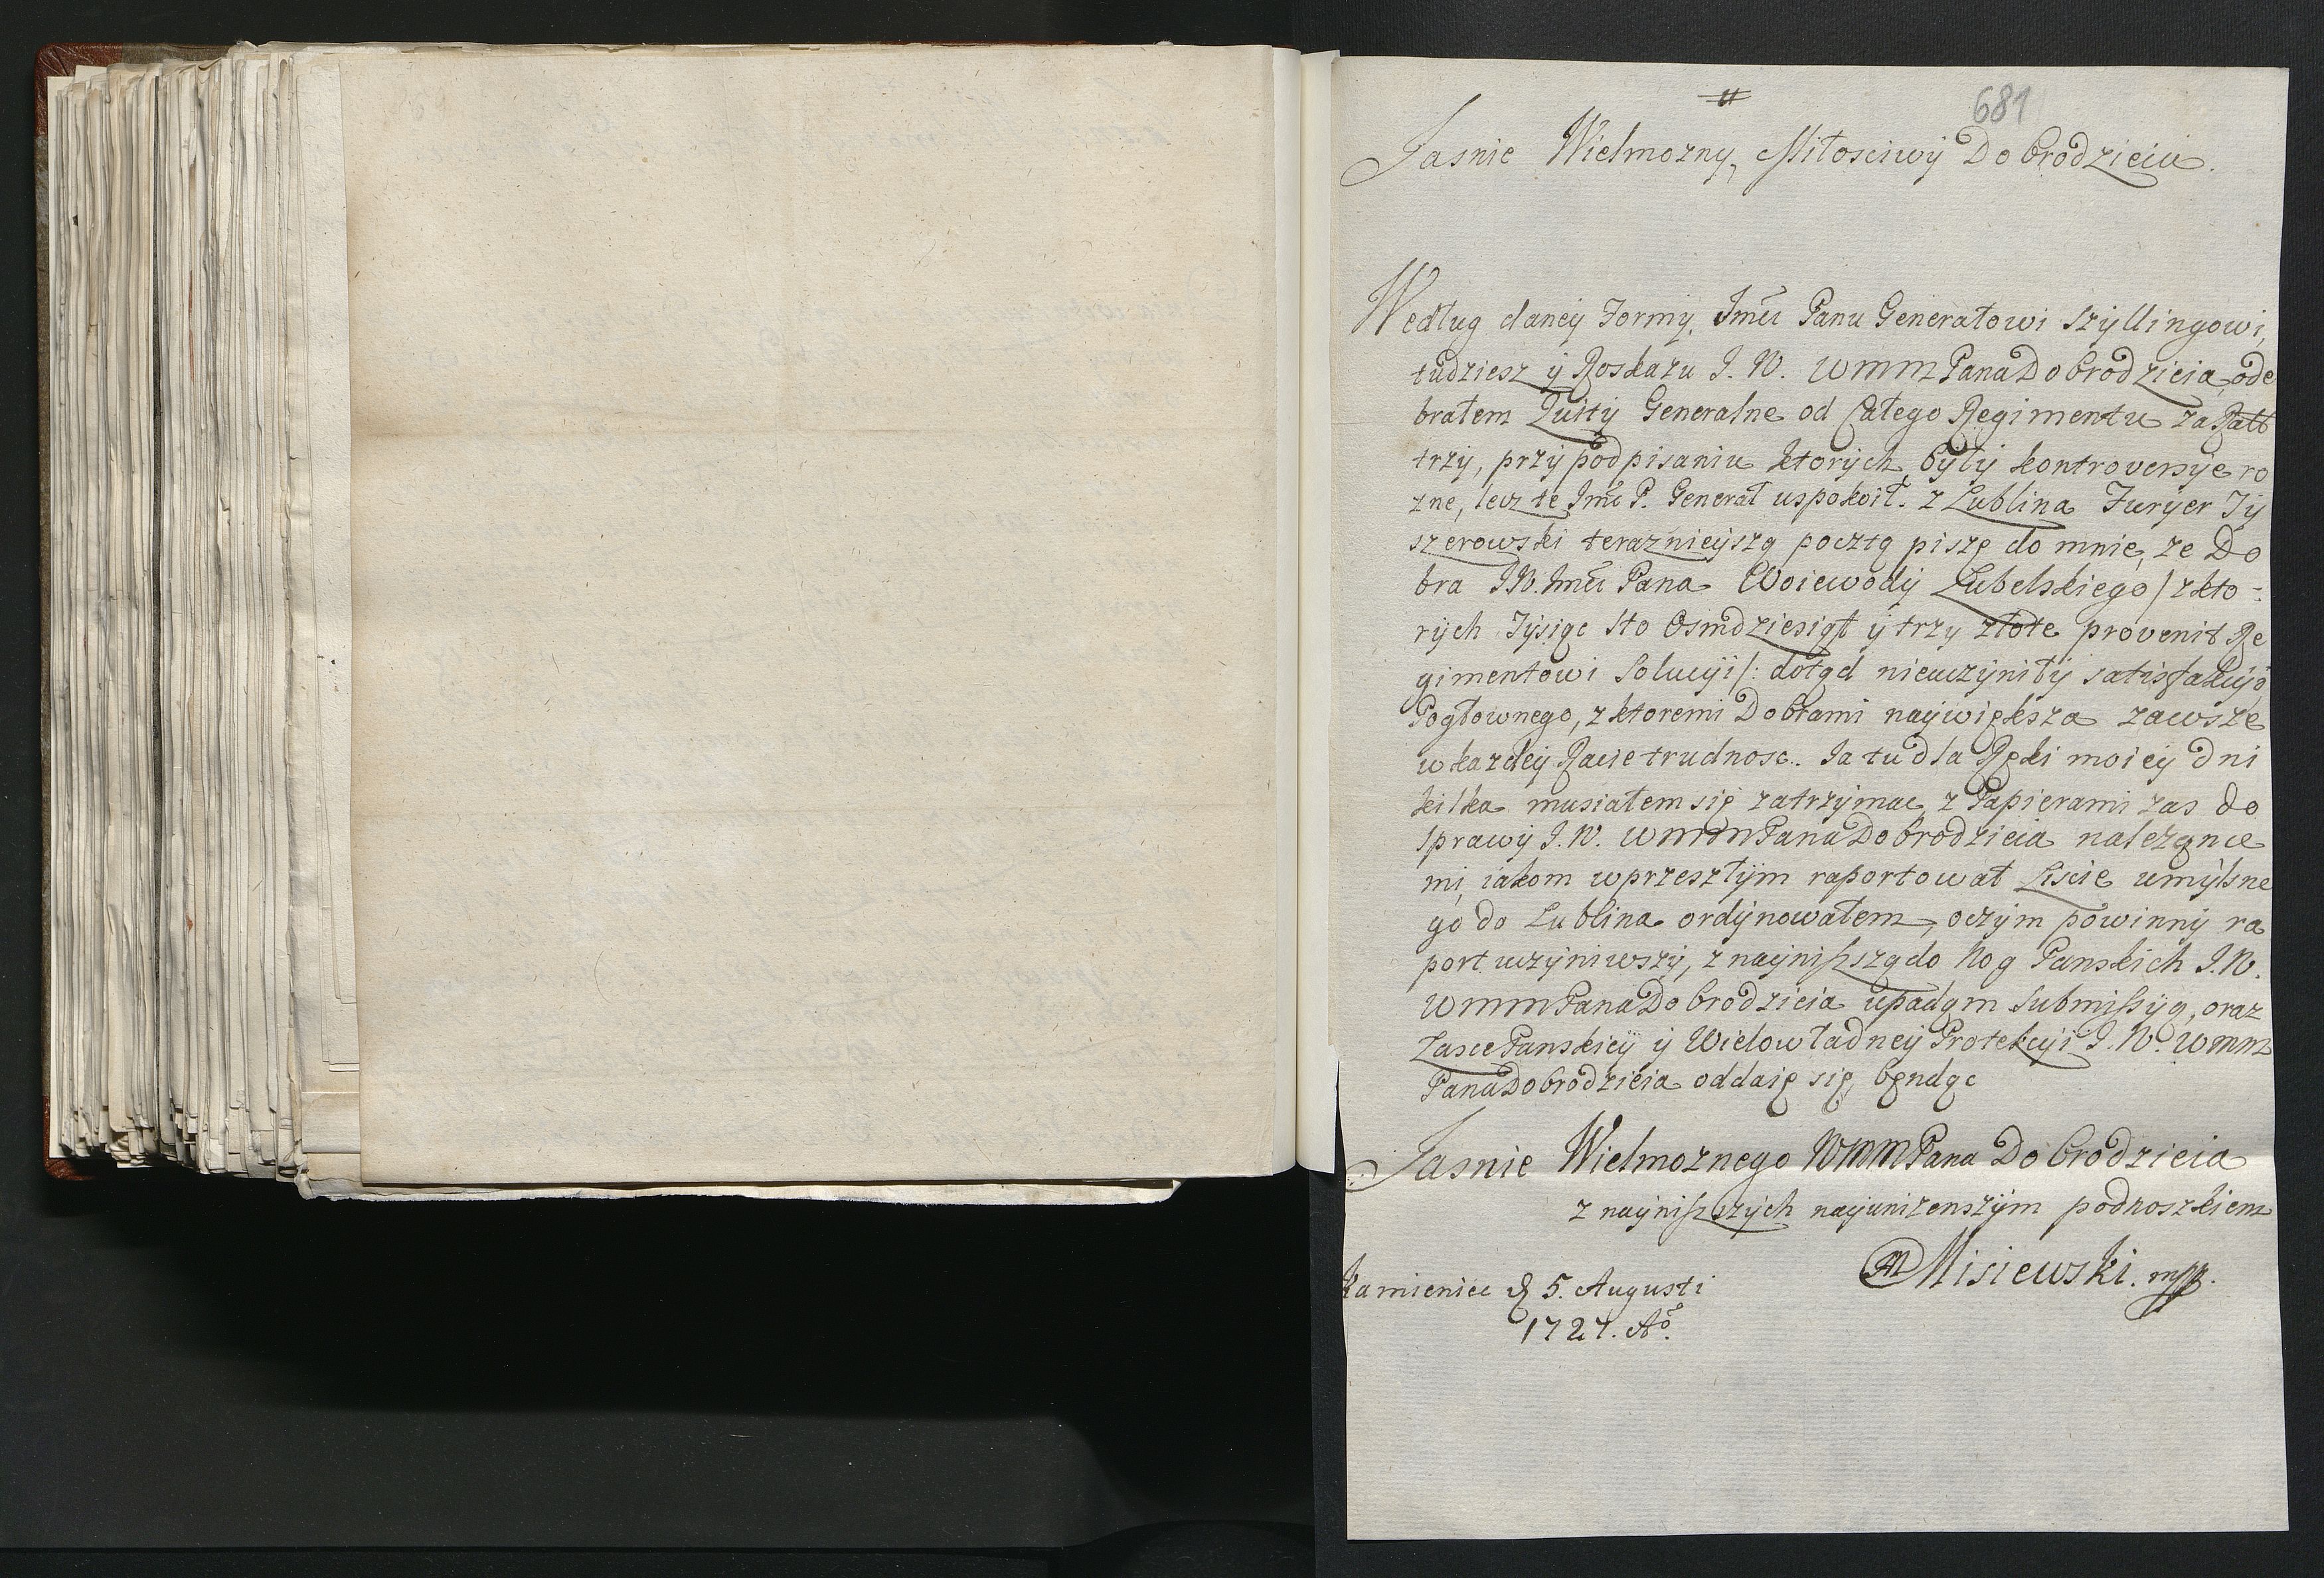 681
Jasnie Wielmozny, Miłosciwÿ Dobrodzieiu.
Według daneÿ Formÿ, Jmći Panu Generałowi Szÿllingowi,
tudziesz ÿ Roskazu J. W. WMM Pana Dobrodzieia, ode
brałem Quitÿ Generalne od Całego Regimentu za Ratt
trzÿ, przÿ podpisaniu ktorÿch bÿłÿ kontroversÿe ro
zne, lecz te Jmć P. Generał uspokoił. z Lublina Furÿer Tÿ
szerowski teraznieÿszą pocztą piszę do mnie, ze Do
bra JW. Jmći Pana Woiewodÿ Lubelskiego /: z kto-
rÿch Tÿsiąc sto Osmdziesiąt ÿ trzÿ złote provenit Re
gimentowi Solucÿi /: dotąd nieuczÿniłÿ satisfakcÿi
Pogłownego, z ktoremi Dobrami naÿwiększa zawsze
w kazdeÿ Racie trudnosc. Ja tu dla Ręki moieÿ dni
kilka musiałem się zatrzÿmac, z Papierami zas do
sprawÿ J. W. WMM Pana Dobrodzieia nalezące
mi, iakom w przeszłÿm raportował Liscie umÿslne
go do Lublina ordÿnowałem, oczÿm powinnÿ ra
port uczÿniwszÿ, z naÿniszszą do Nog Panskich J. W.
WMM Pana Dobrodzieia upadąm submissÿą, oraz
Łasce Panskieÿ ÿ Wielowładneÿ Protekcÿi J. W. WMM
Pana Dobrodzieia oddaię się, bęndąc
Jasnie Wielmoznego WMM Pana Dobrodzieia
z naÿniszszÿch naÿunizenszÿm podnoszkiem
M Misiewski. mpp.
Kamieniec d 5. Augusti
1727. Aº.